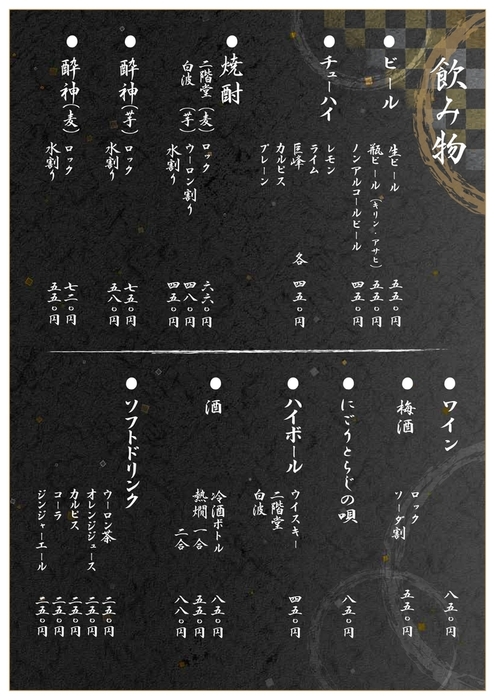 飲み物
●ビール
生ビール 五五〇円
瓶ビール（キリン・アサヒ） 五五〇円
ノンアルコールビール 四五〇円
●チューハイ
レモン
ライム
巨峰 各 四五〇円
カルピス
プレーン
●焼酎
二階堂（麦） ロック 六六〇円
ウーロン割り 四八〇円
白波（芋） 水割り 四五〇円
●酔神（芋）
ロック 七五〇円
水割り 五八〇円
●酔神（麦）
ロック 七二〇円
水割り 五五〇円
●ワイン 八五〇円
●梅酒
ロック
ソーダ割 五五〇円
●にごりとらじの唄 八五〇円
●ハイボール
ウイスキー
二階堂 四五〇円
白波
●酒
冷酒ボトル 八五〇円
熱燗 一合 五五〇円
二合 八八〇円
●ソフトドリンク
ウーロン茶 二五〇円
オレンジジュース 二五〇円
カルピス 二五〇円
コーラ 二五〇円
ジンジャーエール 二五〇円